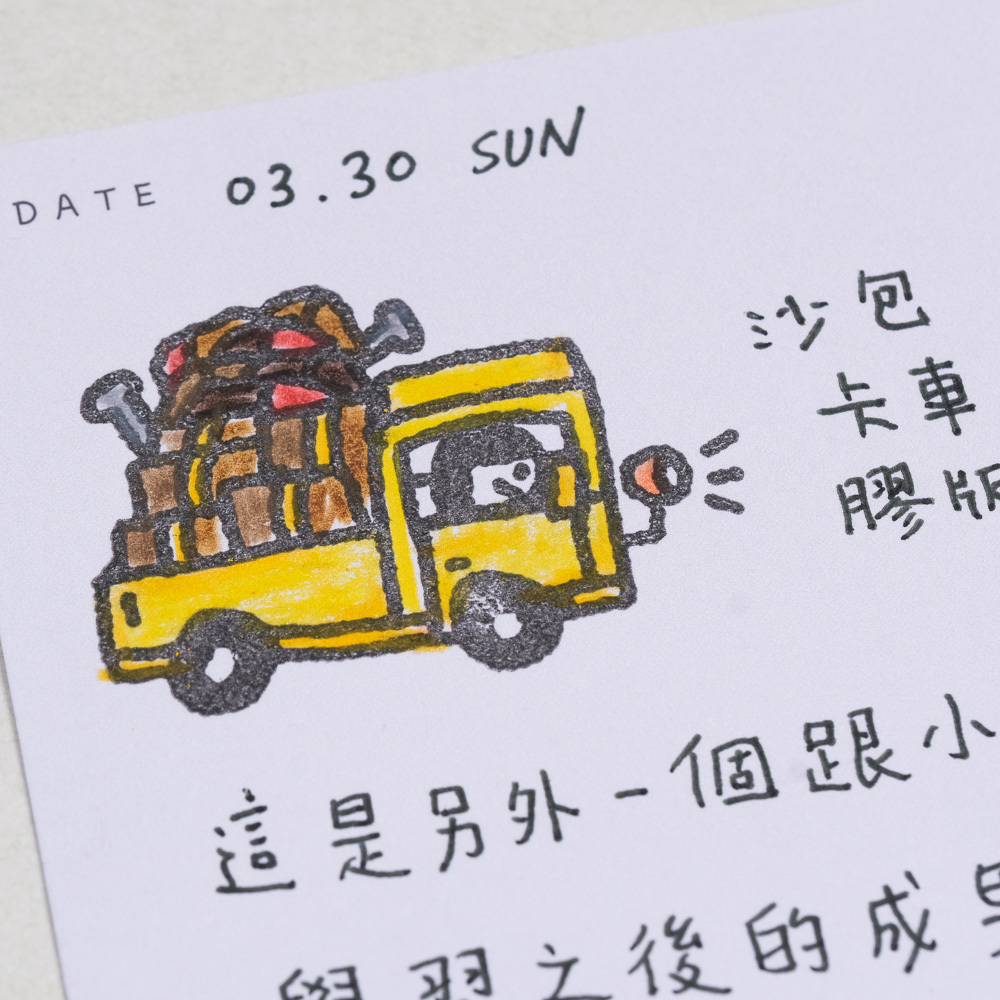 DATE 03.30 SUN
沙包
卡車
膠版
這是另外一個跟小
學習之後的成果